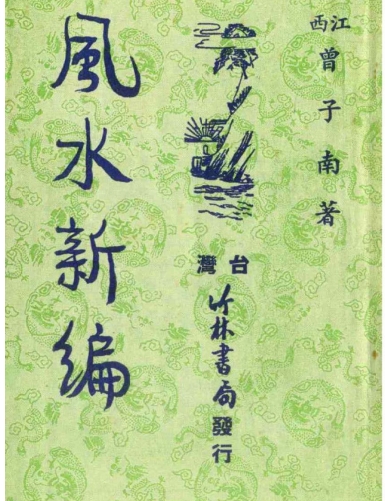 江西
曾子南著
風水新編
台灣
竹林書局發行